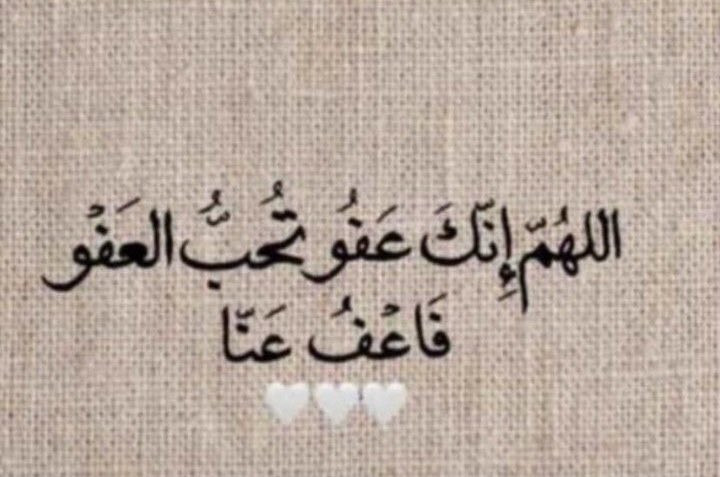 اللهُمّ إِنّكَ عَفُو تُحُبُّ العَفْو
فَاعْفُ عَنّا
🤍🤍🤍